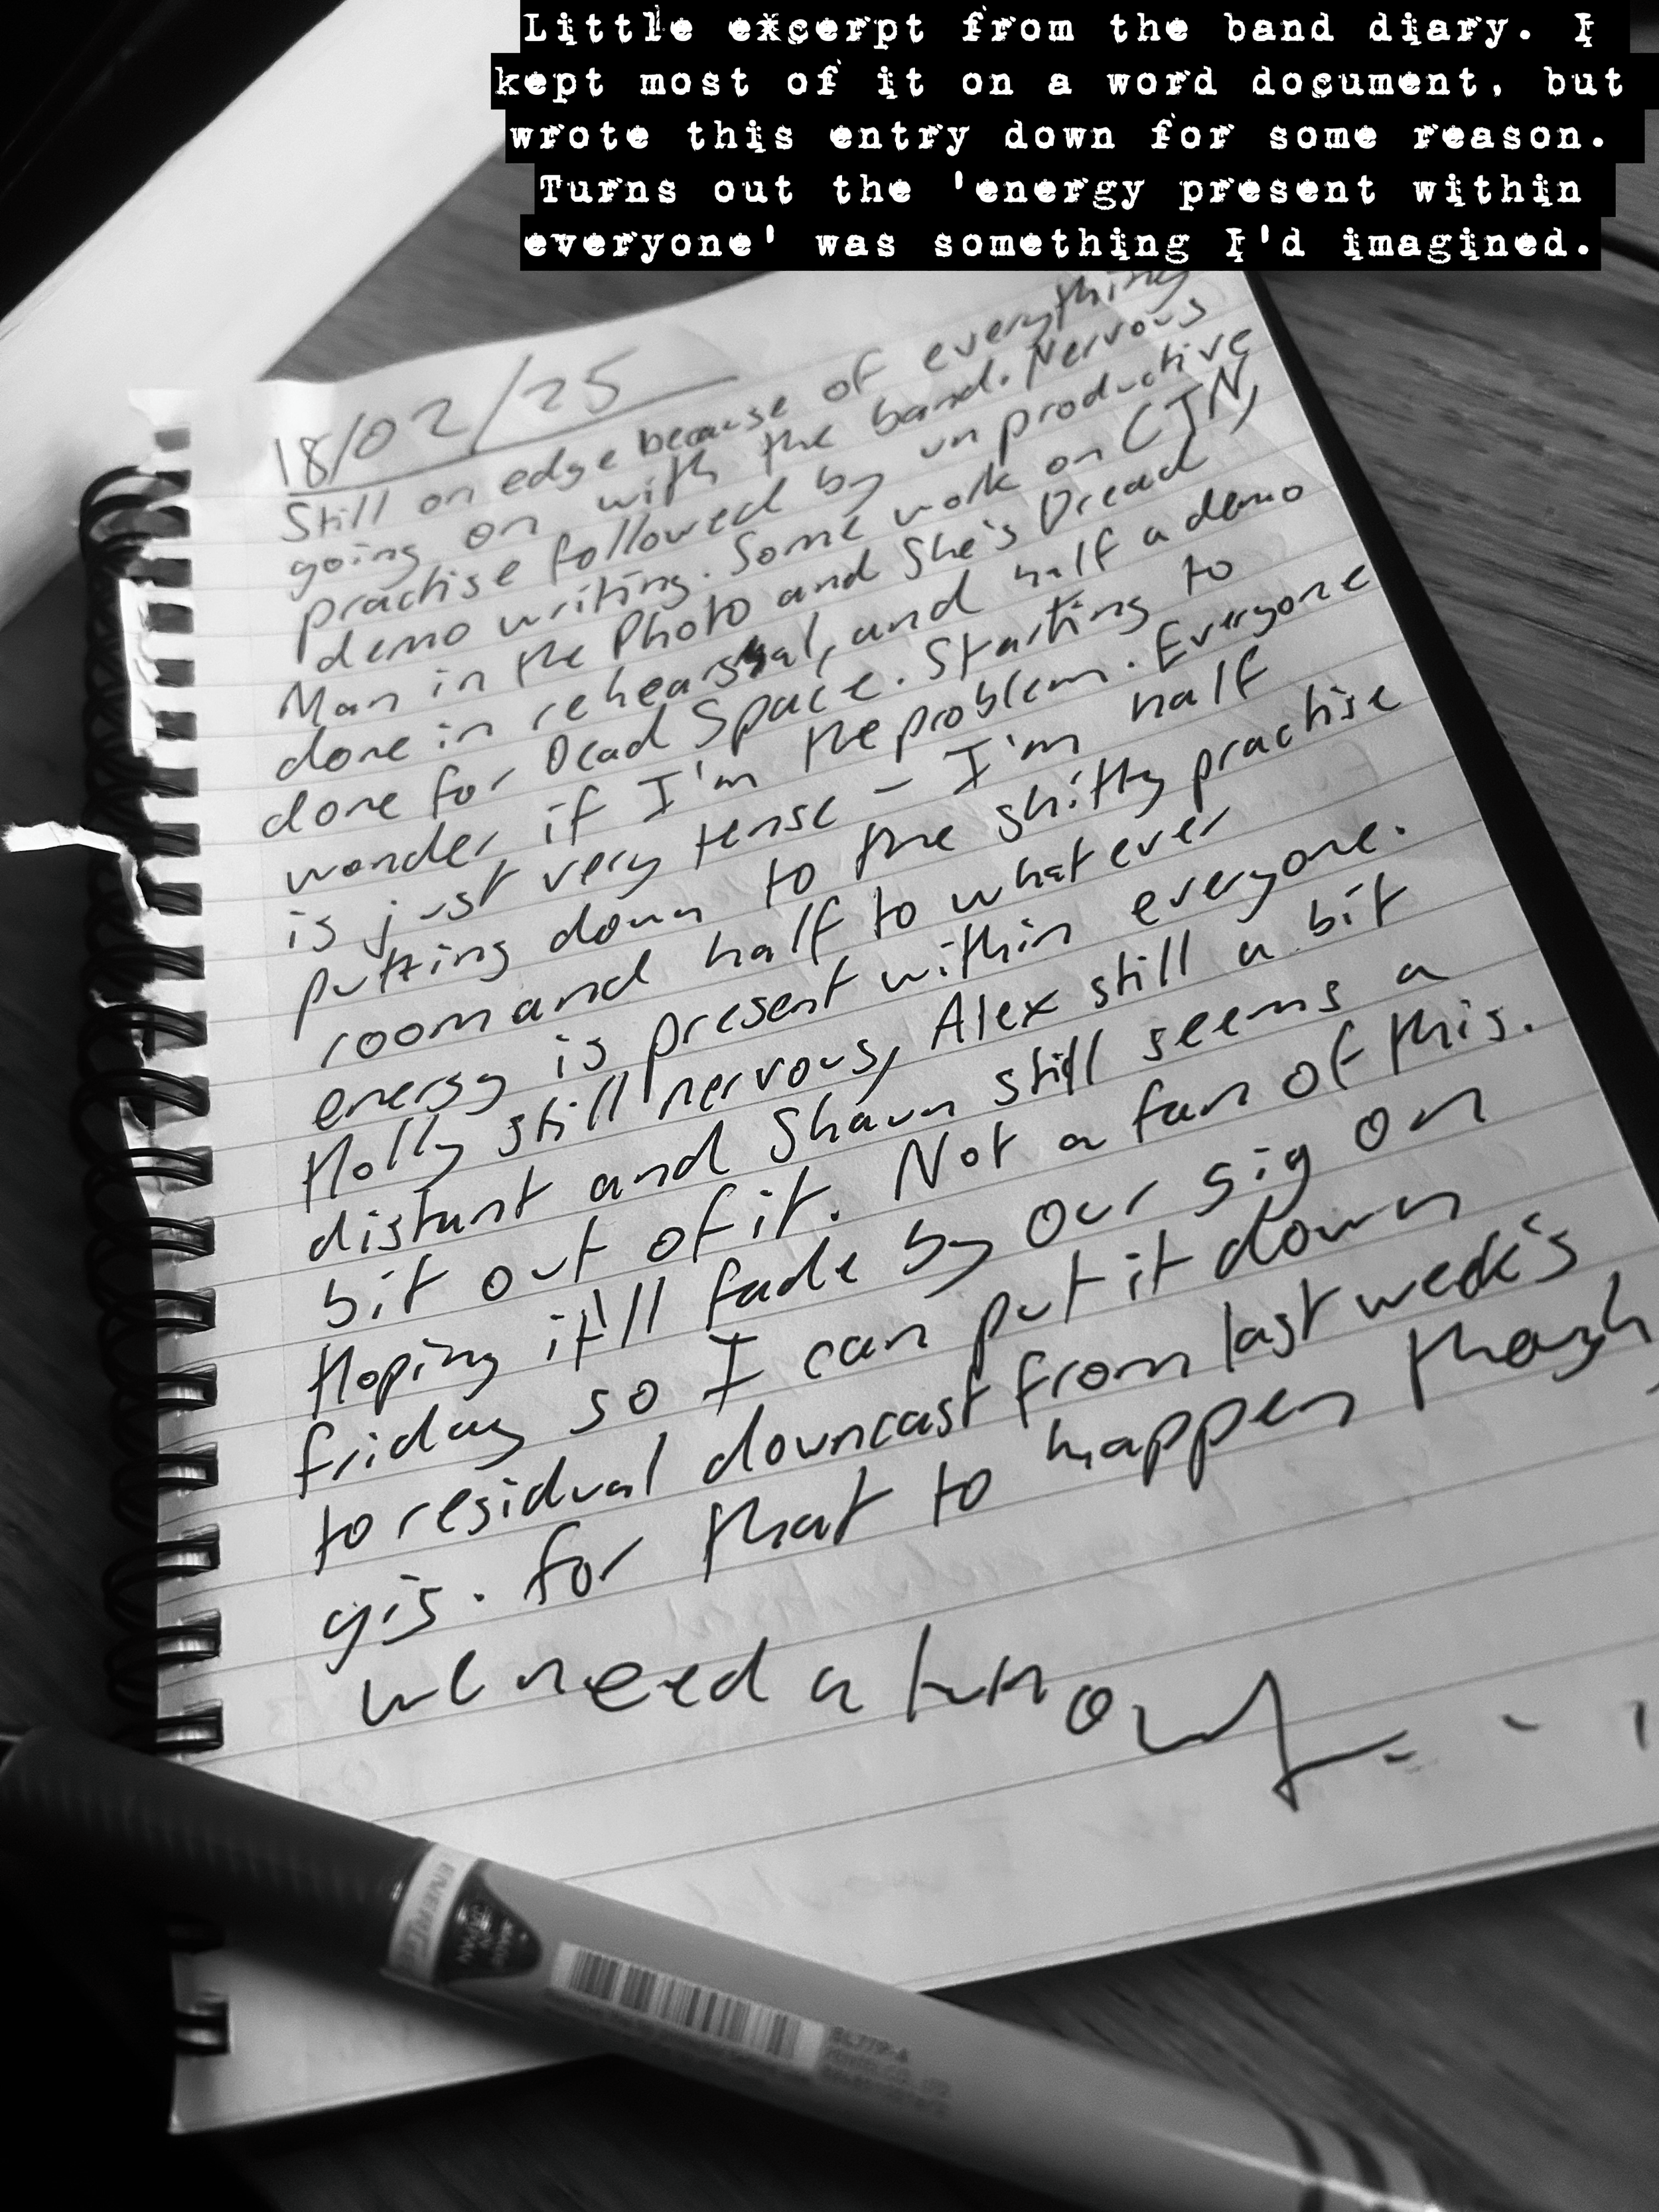 Little excerpt from the band diary. I
kept most of it on a word document, but
wrote this entry down for some reason.
Turns out the 'energy present within
everyone' was something I'd imagined.
18/02/25
Still on edge because of everything
going on with the band. Nervous
practise followed by unproductive
demo writing. Some work on CJN,
Man in the Photo and She's Dread
done in rehearsal, and half a demo
done for Dead Space. Starting to
wonder if I'm the problem. Everyone
is just very tense - I'm half
putting down to the shitty practise
room and half to whatever
energy is present within everyone.
Holly still nervous, Alex still a bit
distant and Shaun still seems a
bit out of it. Not a fan of this.
Hoping it'll fade by our gig on
friday so I can put it down
to residual downcast from last week's
gig. For that to happen though,
we need a turnout...
ENERGEL
MADE
JAPAN